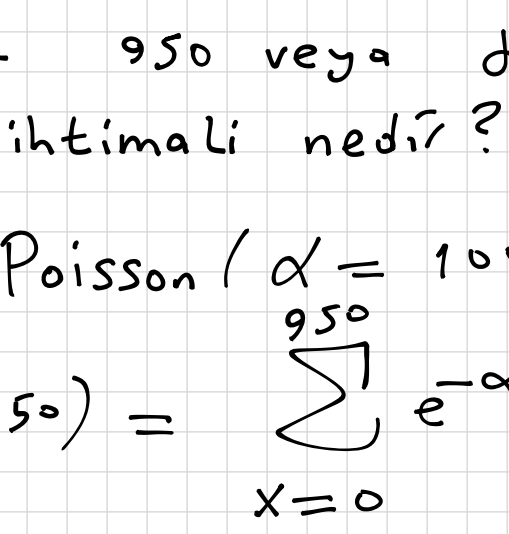 950 veya
ihtimali nedir?
Poisson ( α = 10
950
50) = Σ e^-α
x=0